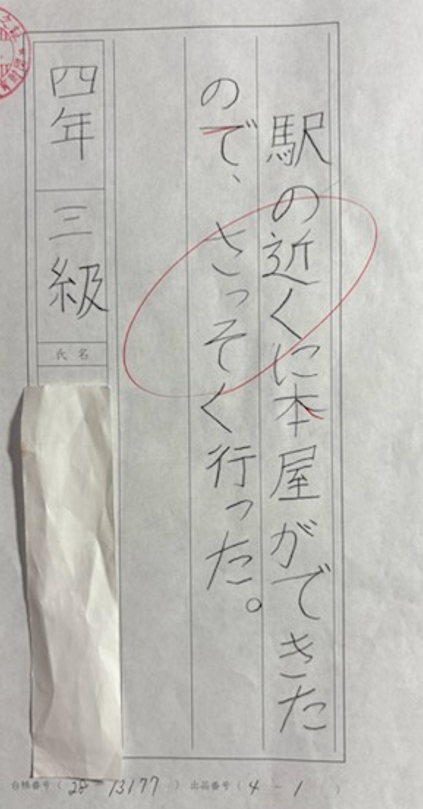 駅の近くに本屋ができた
ので、さっそく行った。
四年 三級
氏名
台帳番号（28-13177）出品番号（4-1）